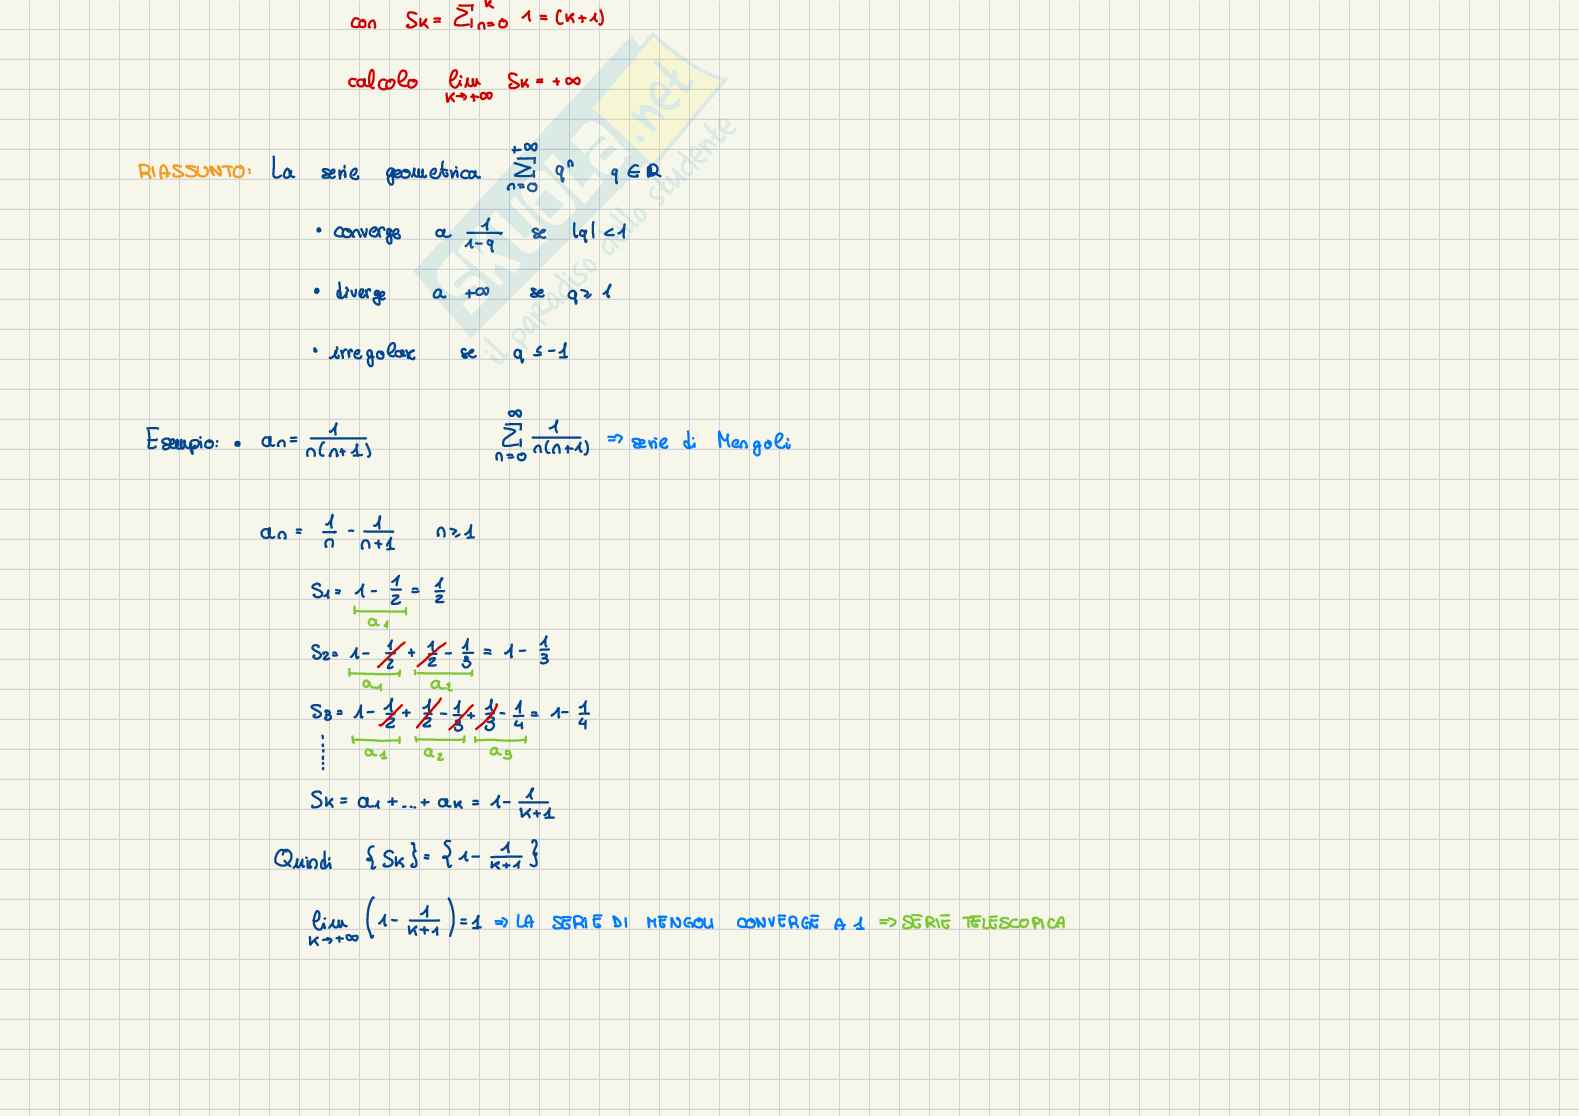 con Sk = Σ_{n=0}^{k} 1 = (k+1)
calcolo lim_{k→+∞} Sk = +∞
RIASSUNTO: La serie geometrica Σ_{n=0}^{+∞} q^n q ∈ R
• converge a 1/(1-q) se |q| < 1
• diverge a +∞ se q ≥ 1
• irregolare se q ≤ -1
Esempio: • an = 1/(n(n+1)) Σ_{n=0}^{∞} 1/(n(n+1)) => serie di Mengoli
an = 1/n - 1/(n+1) n ≥ 1
S1 = 1 - 1/2 = 1/2
a1
S2 = 1 - 1/2 + 1/2 - 1/3 = 1 - 1/3
a1 a2
S3 = 1 - 1/2 + 1/2 - 1/3 + 1/3 - 1/4 = 1 - 1/4
a1 a2 a3
Sk = a1 + ... + ak = 1 - 1/(k+1)
Quindi {Sk} = {1 - 1/(k+1)}
lim_{k→+∞} (1 - 1/(k+1)) = 1 => LA SERIE DI MENGOLI CONVERGE A 1 => SERIE TELESCOPICA
SKUOLA.net
il paradiso dello studente